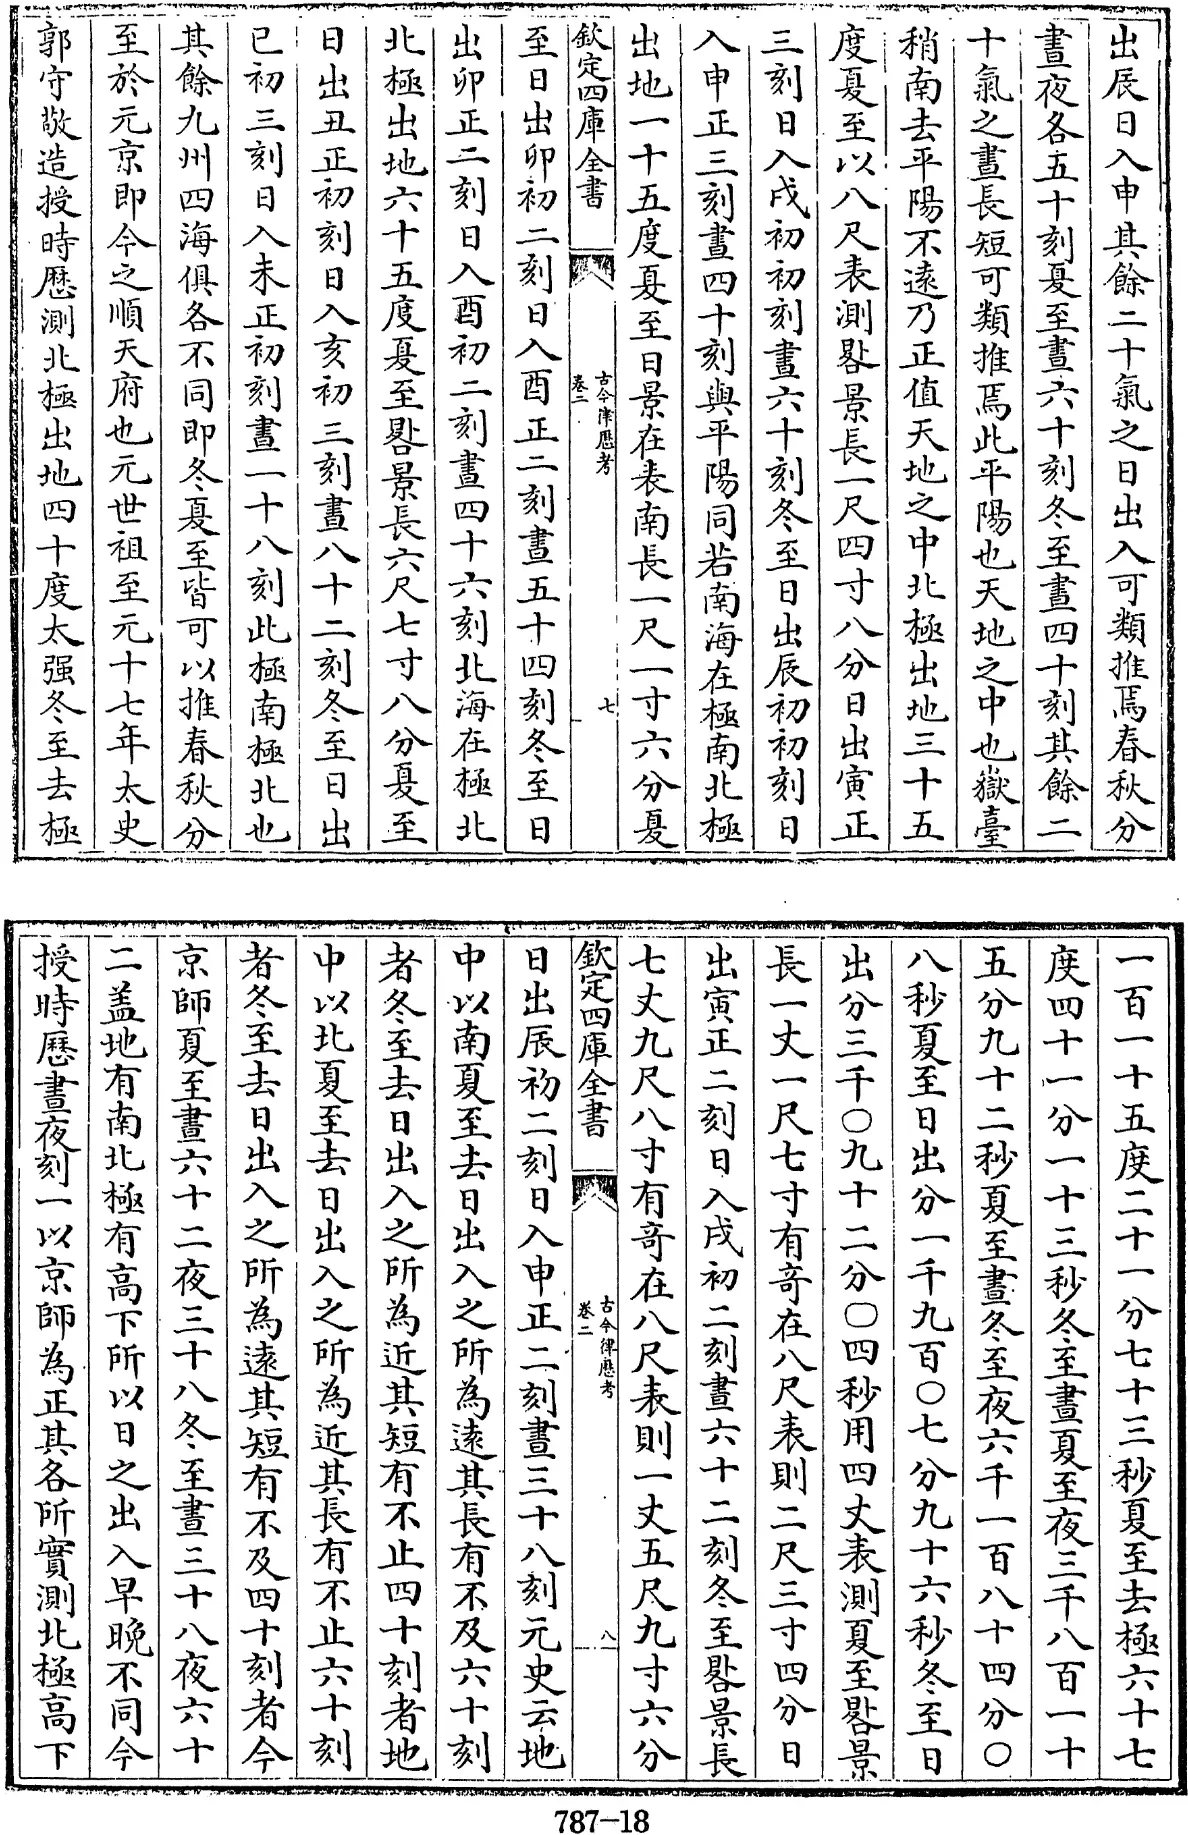 出辰日入申其餘二十氣之日出入可類推焉春秋分
晝夜各五十刻夏至晝六十刻冬至晝四十刻其餘二
十氣之晝長短可類推焉此平陽也天地之中也嶽臺
稍南去平陽不逺乃正值天地之中北極出地三十五
度夏至以八尺表測晷景長一尺四寸八分日出寅正
三刻日入戌初初刻晝六十刻冬至日出辰初初刻日
入申正三刻晝四十刻與平陽同若南海在極南北極
出地一十五度夏至日景在表南長一尺一寸六分夏
欽定四庫全書
古今律厯考
卷二
七
至日出卯初二刻日入酉正二刻晝五十四刻冬至日
出卯正二刻日入酉初二刻晝四十六刻北海在極北
北極出地六十五度夏至晷景長六尺七寸八分夏至
日出丑正初刻日入亥初三刻晝八十二刻冬至日出
巳初三刻日入未正初刻晝一十八刻此極南極北也
其餘九州四海俱各不同即冬夏至皆可以推春秋分
至於元京即今之順天府也元世祖至元十七年太史
郭守敬造授時厯測北極出地四十度太强冬至去極
一百一十五度二十一分七十三秒夏至去極六十七
度四十一分一十三秒冬至晝夏至夜三千八百一十
五分九十二秒夏至晝冬至夜六千一百八十四分〇
八秒夏至日出分一千九百〇七分九十六秒冬至日
出分三千〇九十二分〇四秒用四丈表測夏至晷景
長一丈一尺七寸有奇在八尺表則二尺三寸四分日
出寅正二刻日入戌初二刻晝六十二刻冬至晷景長
七丈九尺八寸有奇在八尺表則一丈五尺九寸六分
欽定四庫全書
古今律厯考
卷二
八
日出辰初二刻日入申正二刻晝三十八刻元史云地
中以南夏至去日出入之所為逺其長有不及六十刻
者冬至去日出入之所為近其短有不止四十刻者地
中以北夏至去日出入之所為近其長有不止六十刻
者冬至去日出入之所為逺其短有不及四十刻者今
京師夏至晝六十二夜三十八冬至晝三十八夜六十
二盖地有南北極有高下所以日之出入早晚不同今
授時厯晝夜刻一以京師為正其各所實測北極高下
787-18